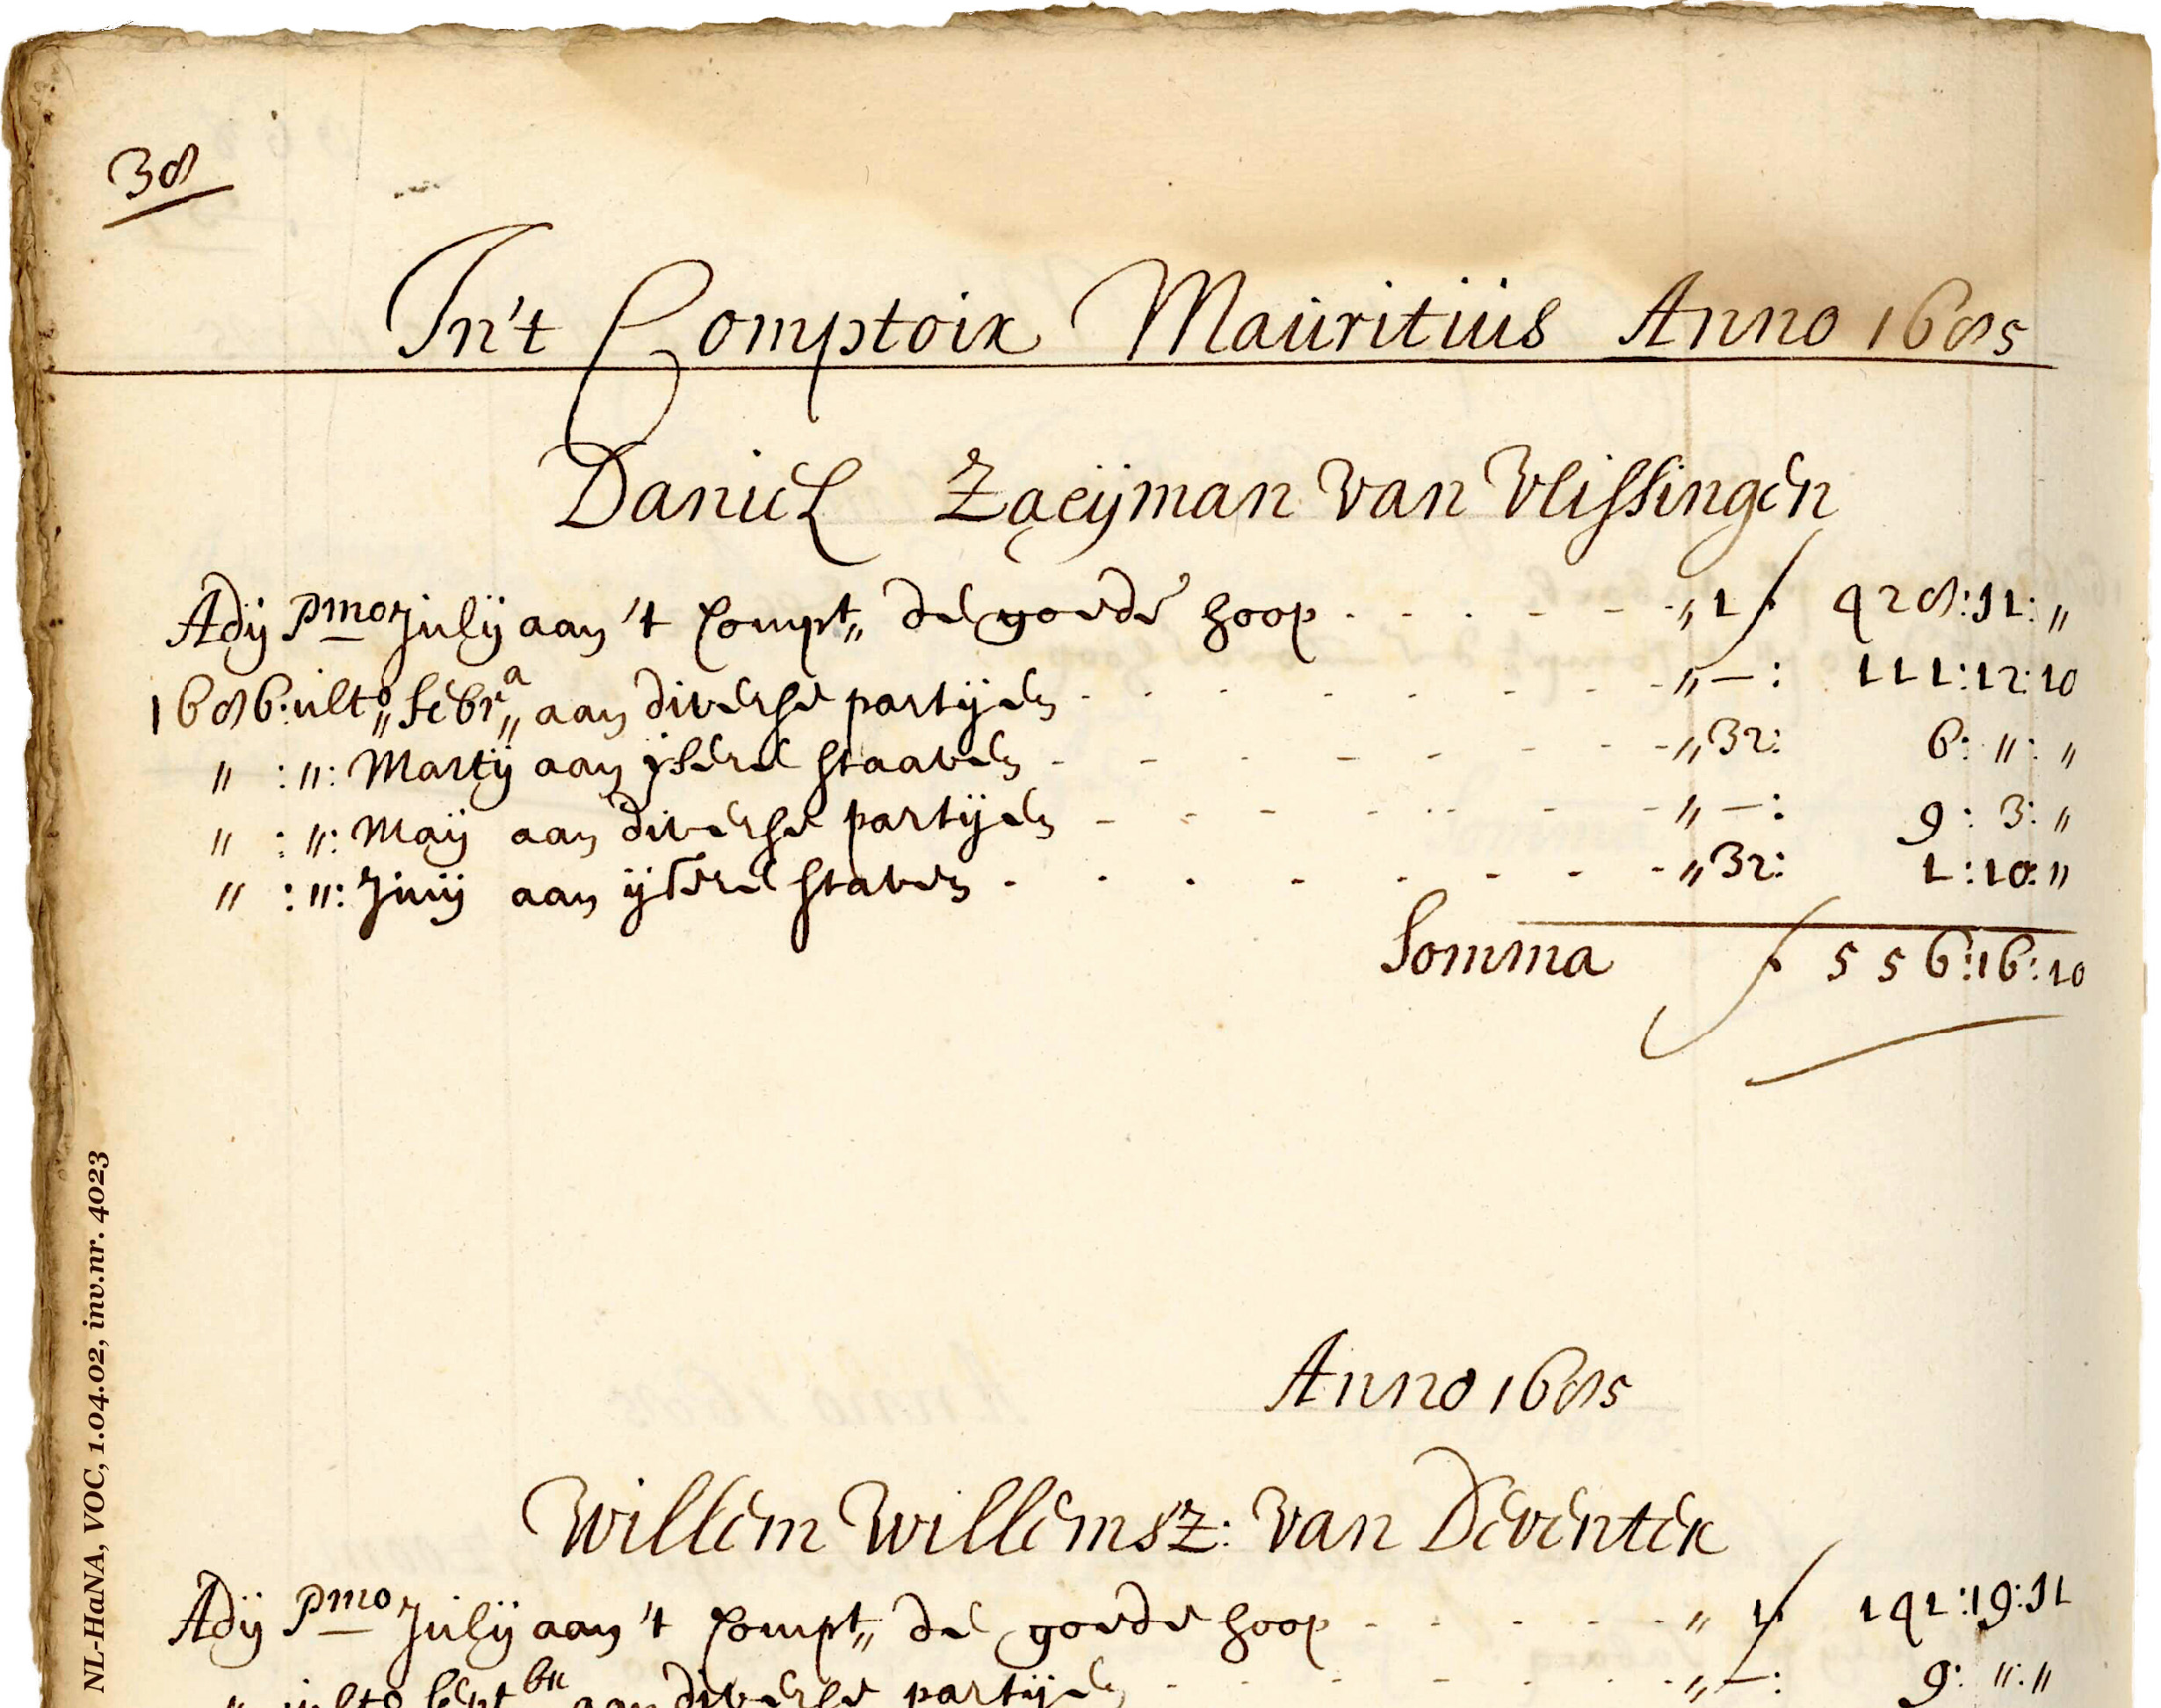 38
In't Comptoir Mauritius Anno 1685
Daniel Zaeijman van Vlissingen
Adij Pmo Julij aan 't Compt„ de goede hoop . . . . . „ 1 f 428:11: „
1686: ulto„ febra„ aan diverse partijen . . . . . „ — : 111:12:10
„ : „: Martij aan ijsere staaven . . . . . „ 32: 6: „ : „
„ : „: Maij aan diverse partijen . . . . . „ — : 9: 3: „
„ : „: Junij aan ijsere staven . . . . . „ 32: 1:10: „
Somma f 556:16:10
Anno 1685
Willem Willemsz: van Deventer
Adij Pmo Julij aan 't Compt„ de goede hoop . . . . . „ 1 f 141:19:11
„ ulto Septbr aan diverse partijen . . . . . „ — : 9: „ : „
NL-HaNA, VOC, 1.04.02, inv.nr. 4023